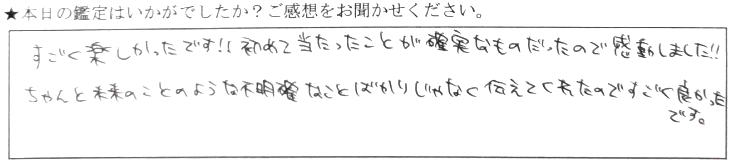 ★本日の鑑定はいかがでしたか？ご感想をお聞かせください。
すごく楽しかったです!! 初めて当たったことが確実なものだったので感動しました!!
ちゃんと未来のことのような不明確なことばかりじゃなく伝えてくれたのですごく良かった
です。